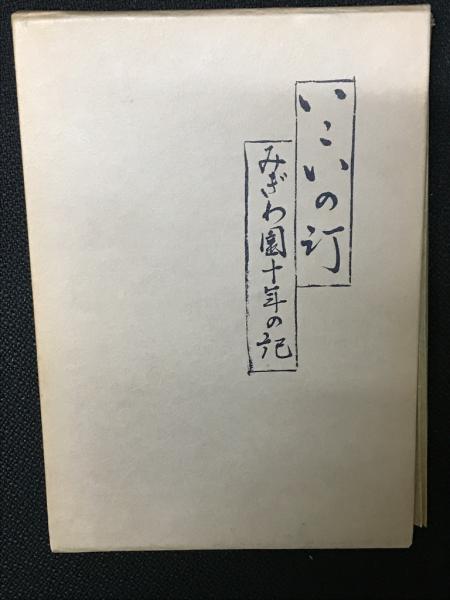 いこいの汀
みぎわ園十年の記